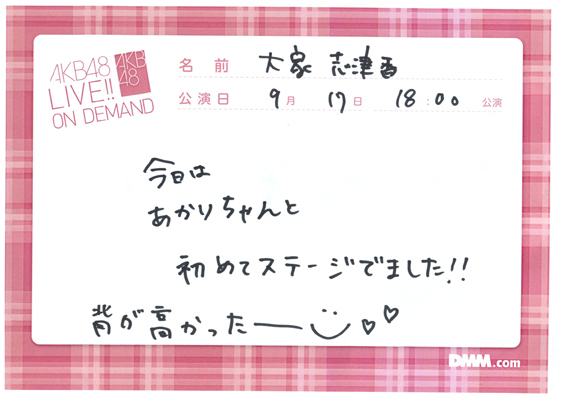 AKB48
LIVE!!
ON DEMAND
AKB
48
名前 大家 志津香
公演日 9月 17日 18:00 公演
今日は
あかりちゃんと
初めてステージでました!!
背が高かったー
DMM.com